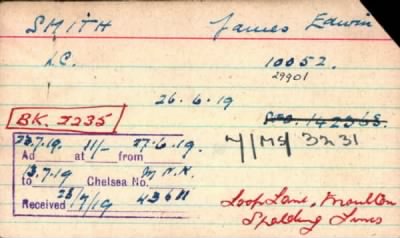 SMITH James Edwin
L.C. 10052.
29901
26.6.19
BK. 2235
7/MS/3231
23.7.19. 11/- 27.6.19.
Ad at from
13.7.19 M.N.K.
to Chelsea No.
Received 23/7/19 43611
Loop Lane, Moulton
Spalding Lincs